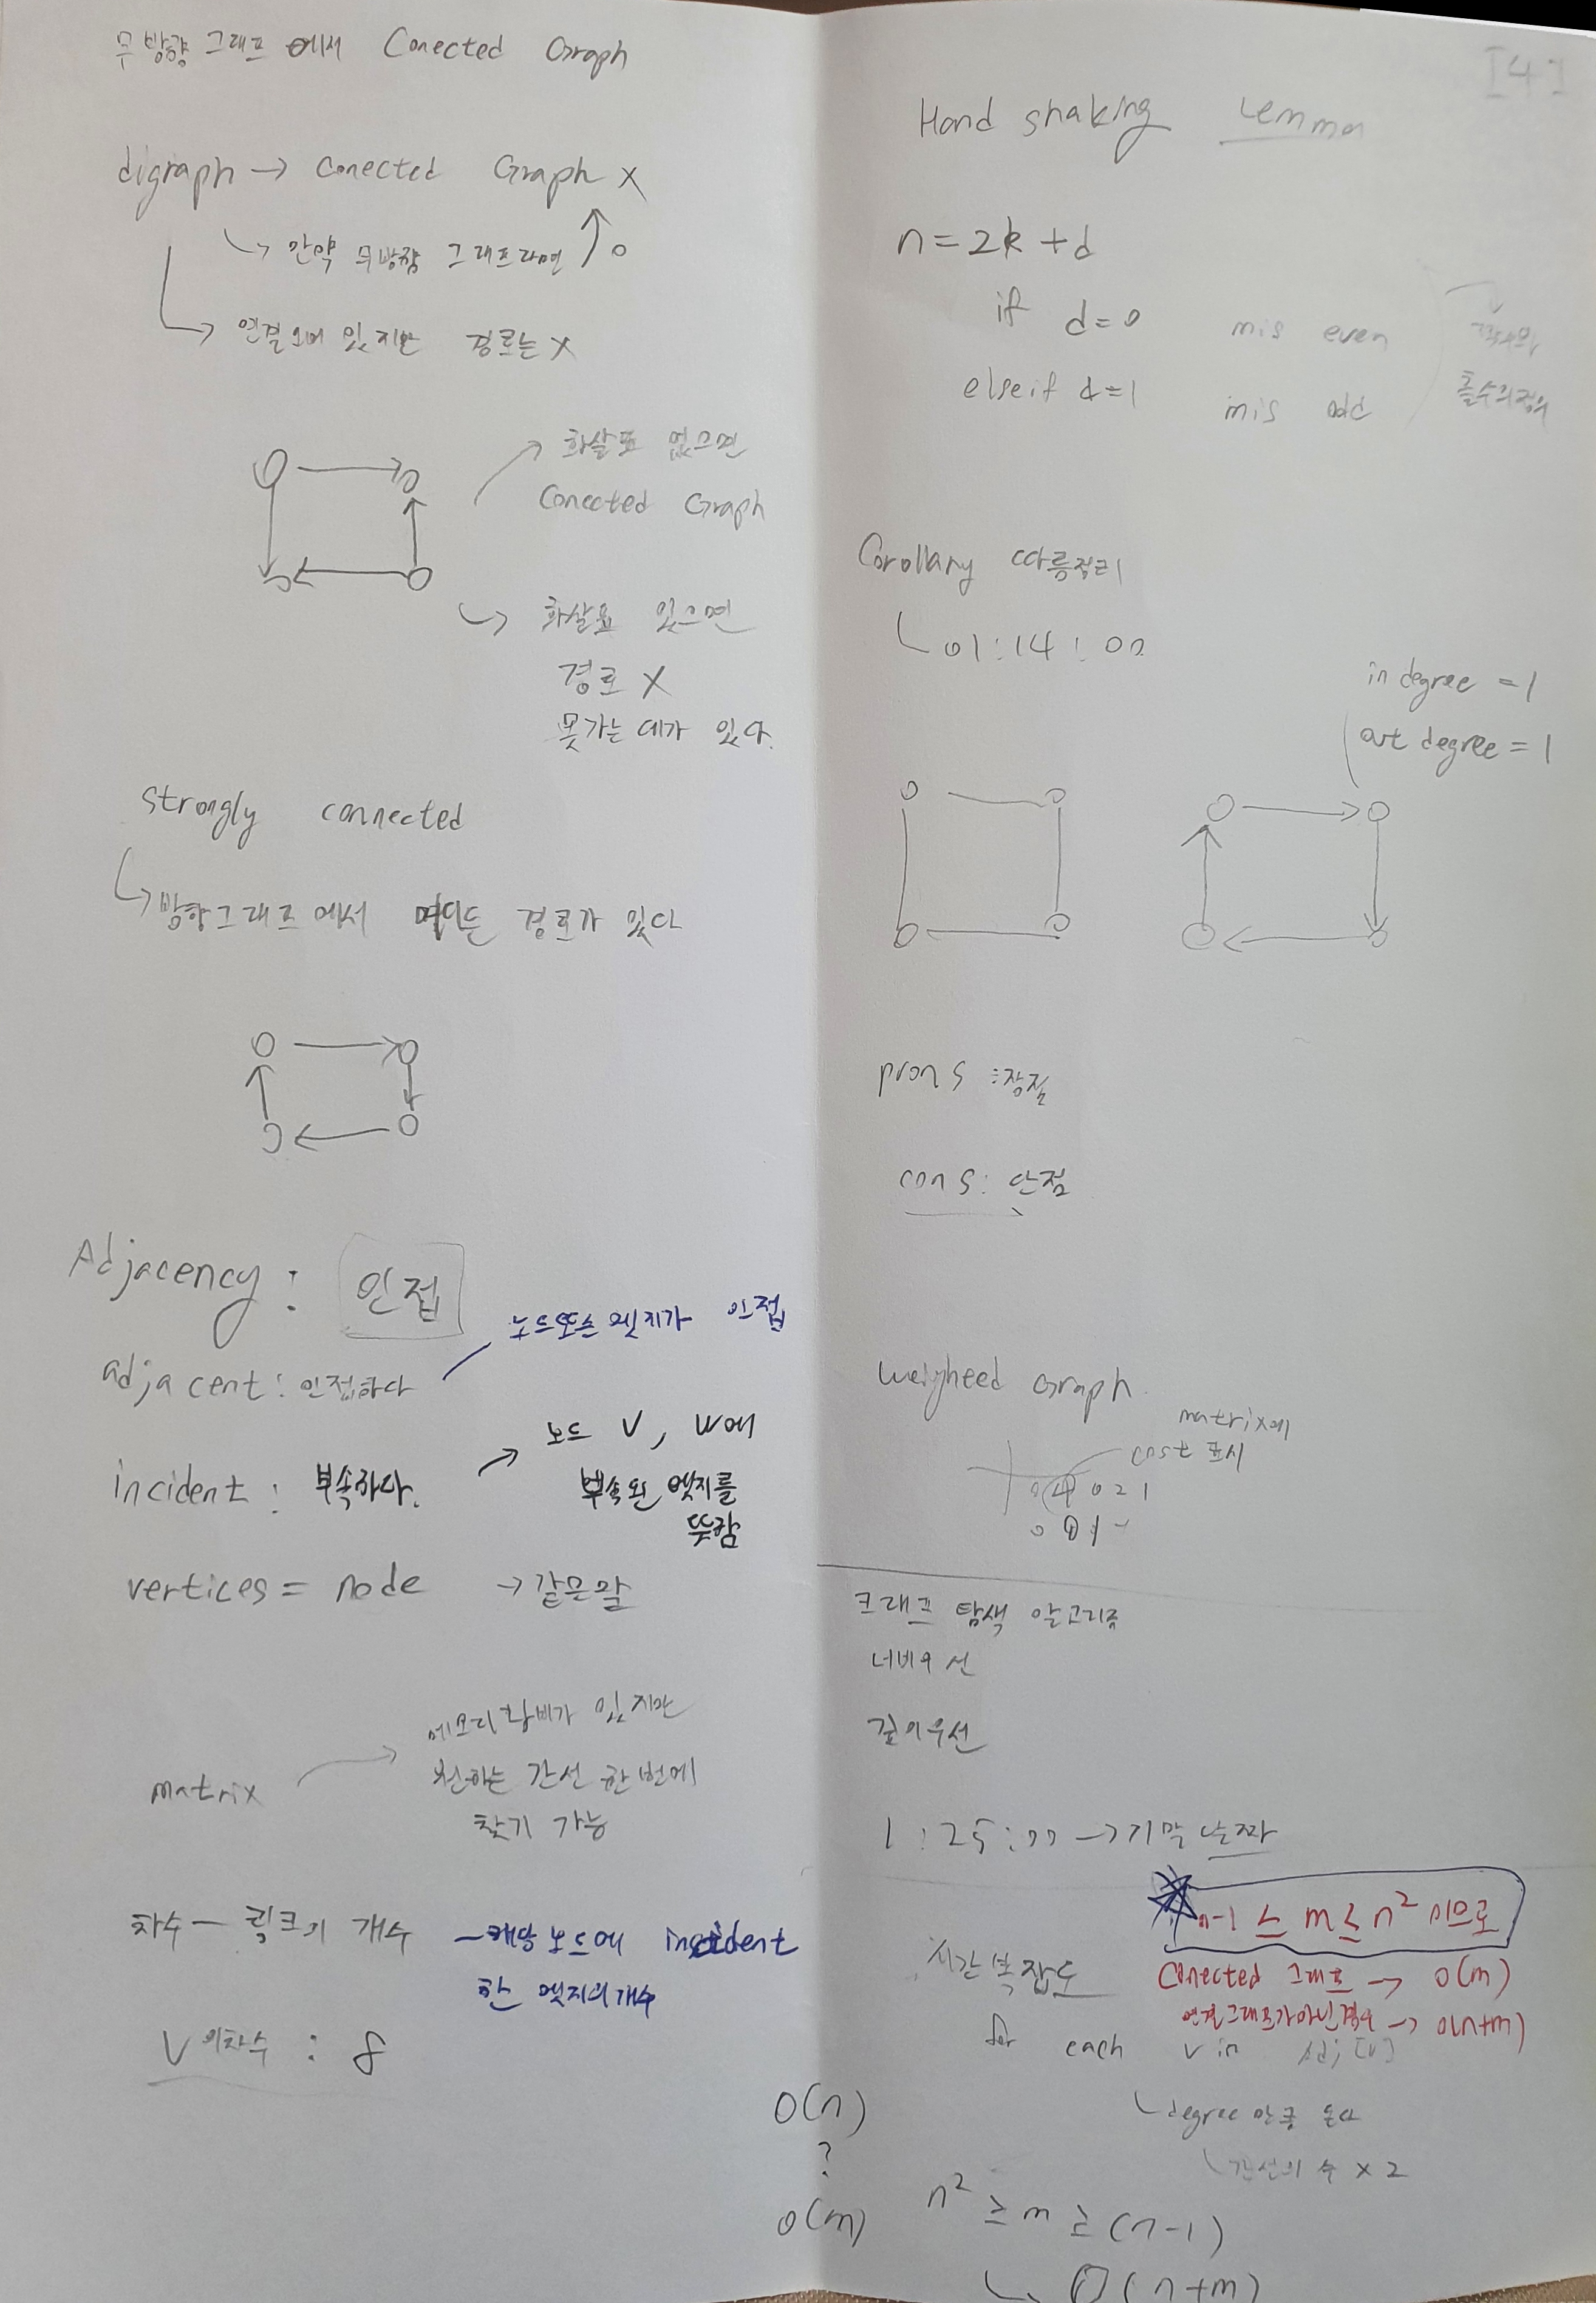 무방향 그래프 에서 Conected Graph
digraph → Conected Graph X
↳ 만약 무방향 그래프라면 ↑ o
↳ 연결되어 있지만 경로는 X
화살표 없으면
Conected Graph
화살표 있으면
경로 X
못가는 데가 있다.
strongly connected
↳ 방향그래프에서 어디든 경로가 있다
Adjacency : 인접
adjacent : 인접하다
노드또는 엣지가 인접
incident : 부속하다.
노드 V, W에
부속된 엣지를
뜻함
vertices = node → 같은말
matrix → 메모리 낭비가 있지만
원하는 간선 한번에
찾기 가능
차수 — 링크의 개수 — 해당 노드에 incident
한 엣지의 개수
V의차수 : 8
[4]
Hand shaking Lemma
n = 2k + d
if d=0 m is even
else if d=1 m is odd
홀수의정의
Corollary 따름정리
↳ 01:14:00
in degree = 1
out degree = 1
prons : 장점
cons : 단점
weigheed Graph
matrix에
cost 표시
4 0 2 1
그래프 탐색 알고리즘
너비우선
깊이우선
1:25:00 → 기말 날짜
n-1 ≤ m ≤ n² 이므로
시간복잡도
Conected 그래프 → O(m)
연결그래프가아닌경우 → O(n+m)
for each v in Adj[v]
↳ degree 만큼 돈다
↳ 간선의 수 x 2
O(n)
?
O(m)
n² ≥ m ≥ (n-1)
↳ O(n+m)